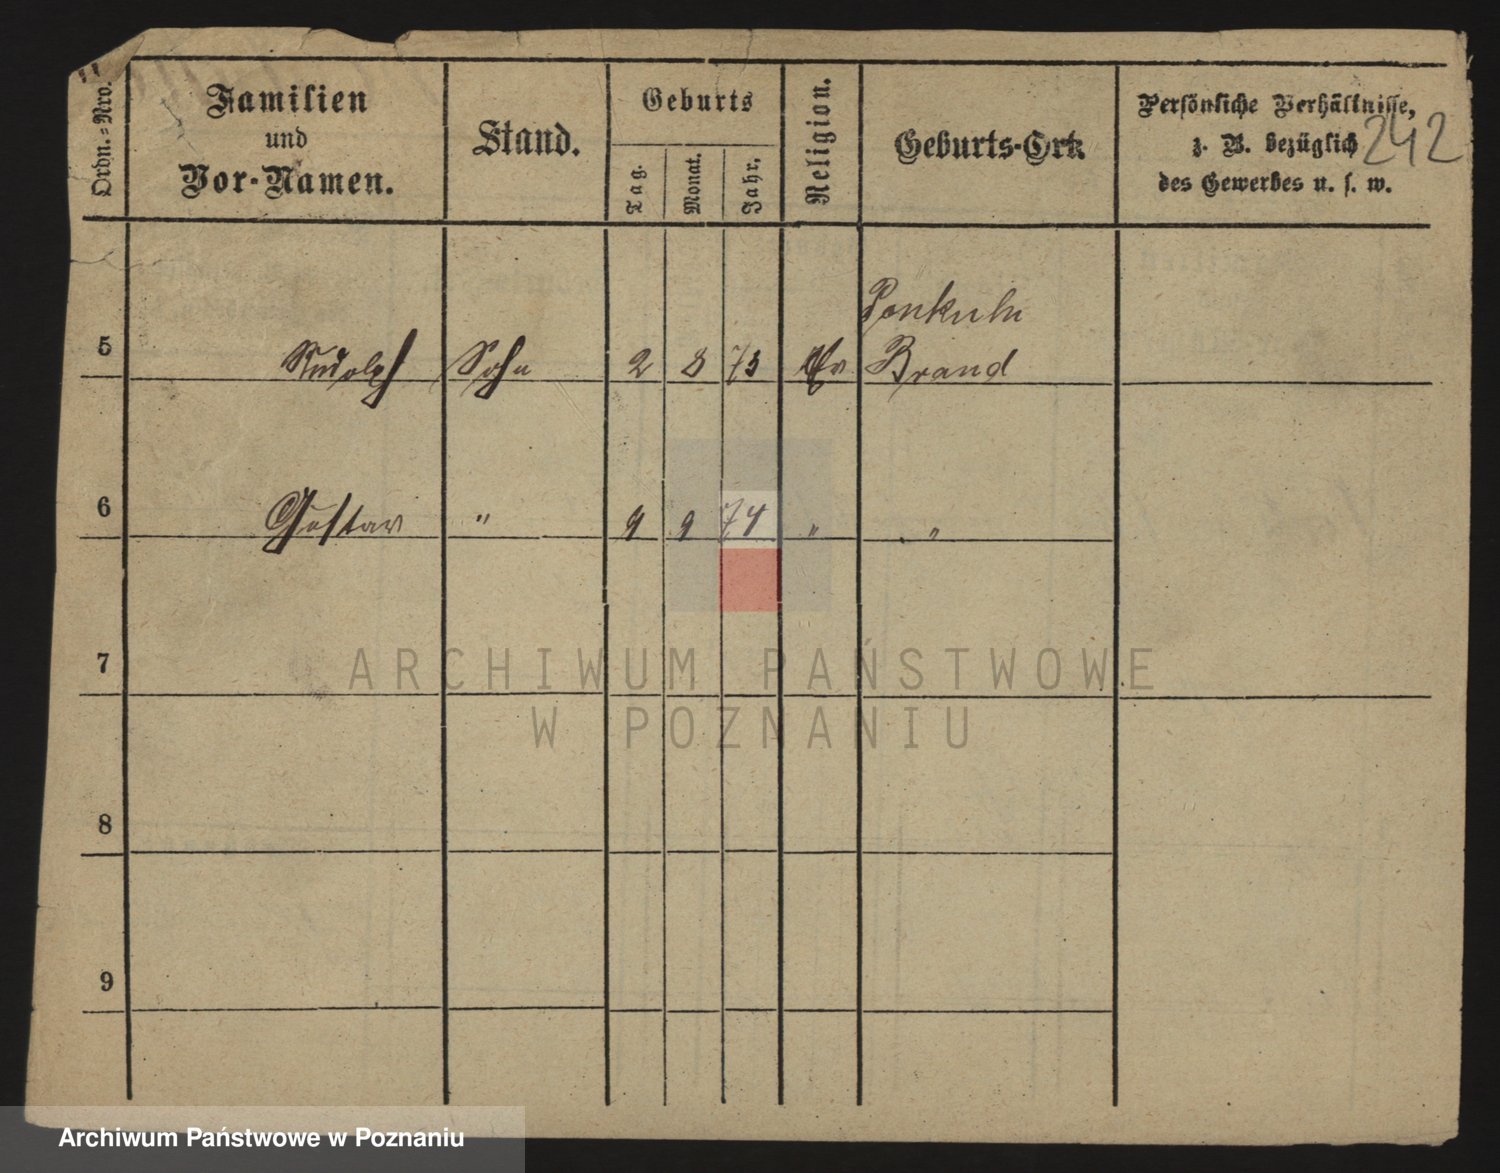 Ordn.=Nro.
Familien
und
Vor-Namen.
Stand.
Geburts
Tag.
Monat.
Jahr.
Religion.
Geburts-Ort.
Persönliche Verhältnisse,
z. B. bezüglich
des Gewerbes u. s. w.
242
5 Rudolph Sohn 2 8 73 Ev Brand
6 Gustav " 9 9 74 " "
7
8
9
ARCHIWUM PAŃSTWOWE
W POZNANIU
Archiwum Państwowe w Poznaniu